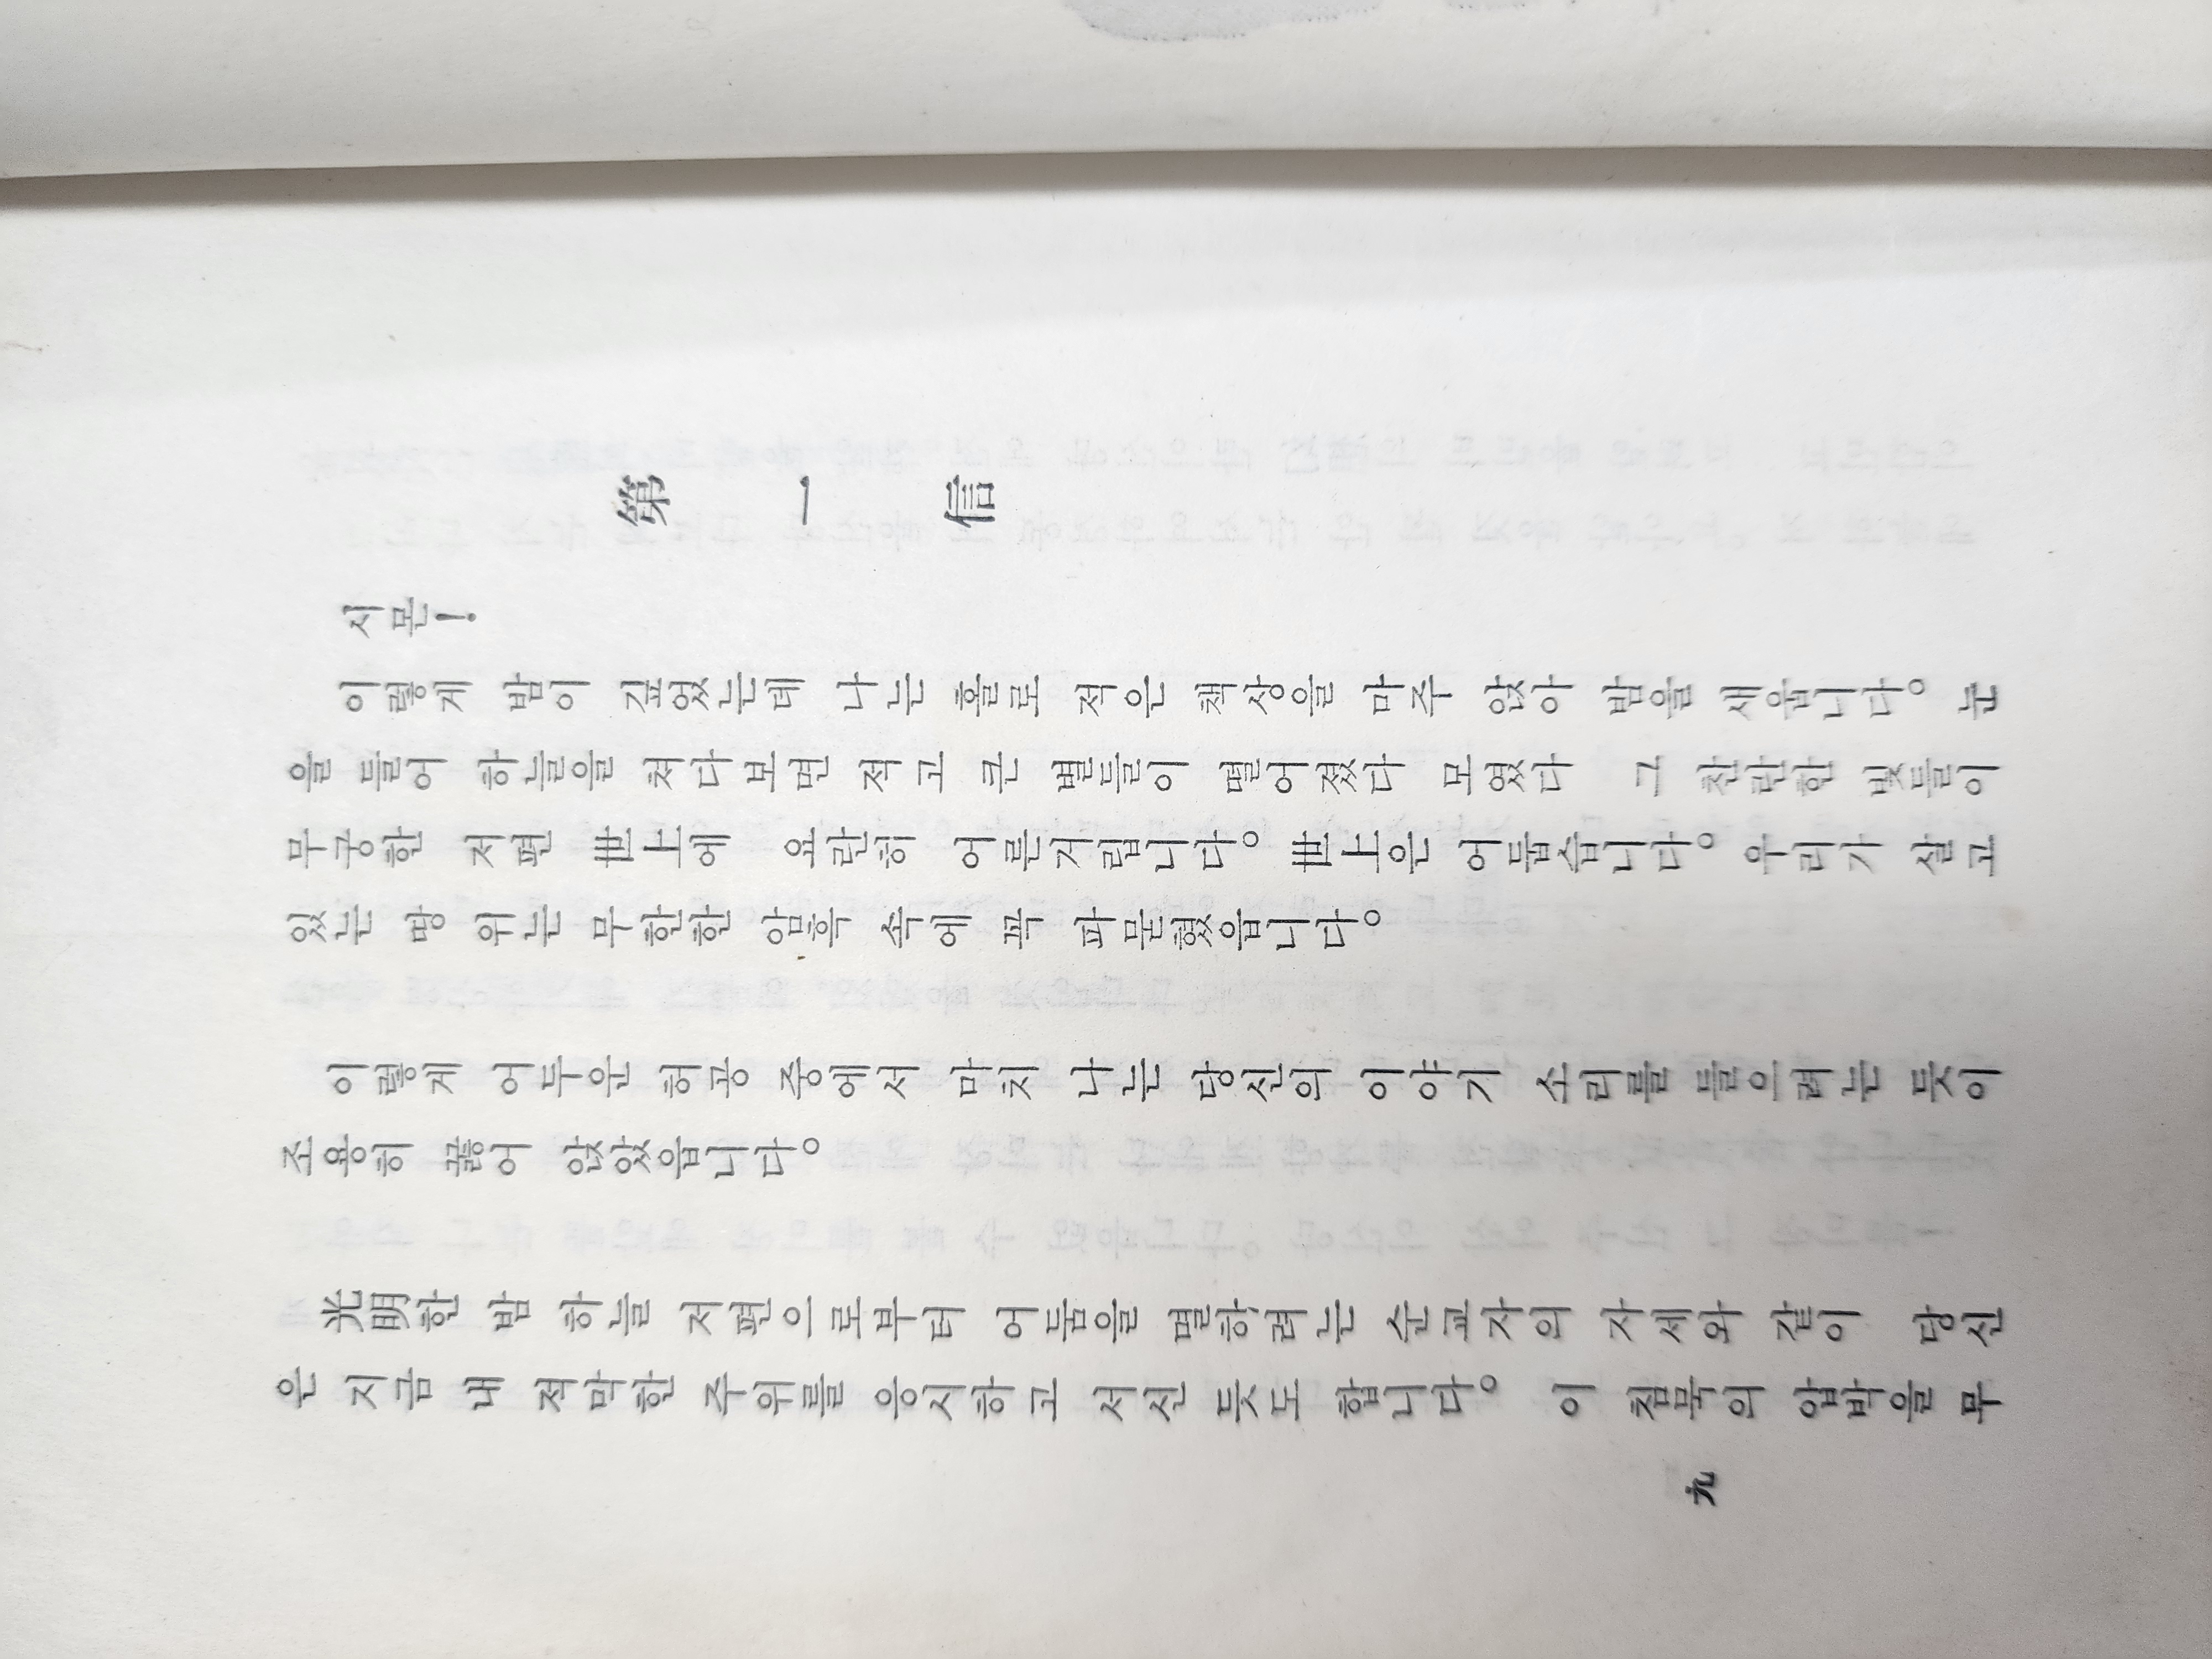 第一信
시몬!
이렇게 밤이 깊었는데 나는 홀로 적은 책상을 마주 앉아 밤을 새웁니다。 눈
을 들어 하늘을 처다보면 적고 큰 별들이 떨어졌다 모였다 그 찬란한 빛들이
무궁한 저편 世上에 요란히 어른거립니다。 世上은 어둡습니다。 우리가 살고
있는 땅 위는 무한한 암흑 속에 꼭 파묻혔읍니다。
이렇게 어두운 허공 중에서 마치 나는 당신의 이야기 소리를 들으려는 듯이
조용히 꿇어 앉았읍니다。
光明한 밤 하늘 저편으로부터 어둠을 멸하려는 순교자의 자세와 같이 당신
은 지금 내 적막한 주위를 응시하고 서신 듯도 합니다。 이 침묵의 압박을 무
九